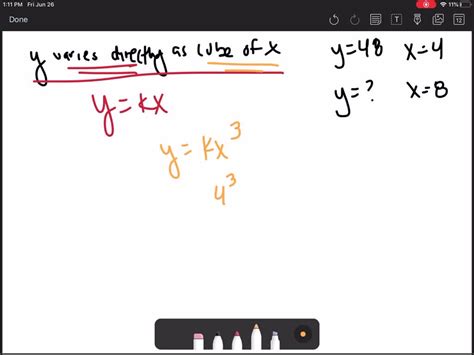 1:11 PM Fri Jun 26
11%
Done
y varies directly as cube of x
y=48 x=4
y=kx
y=? x=8
y=kx³
4³